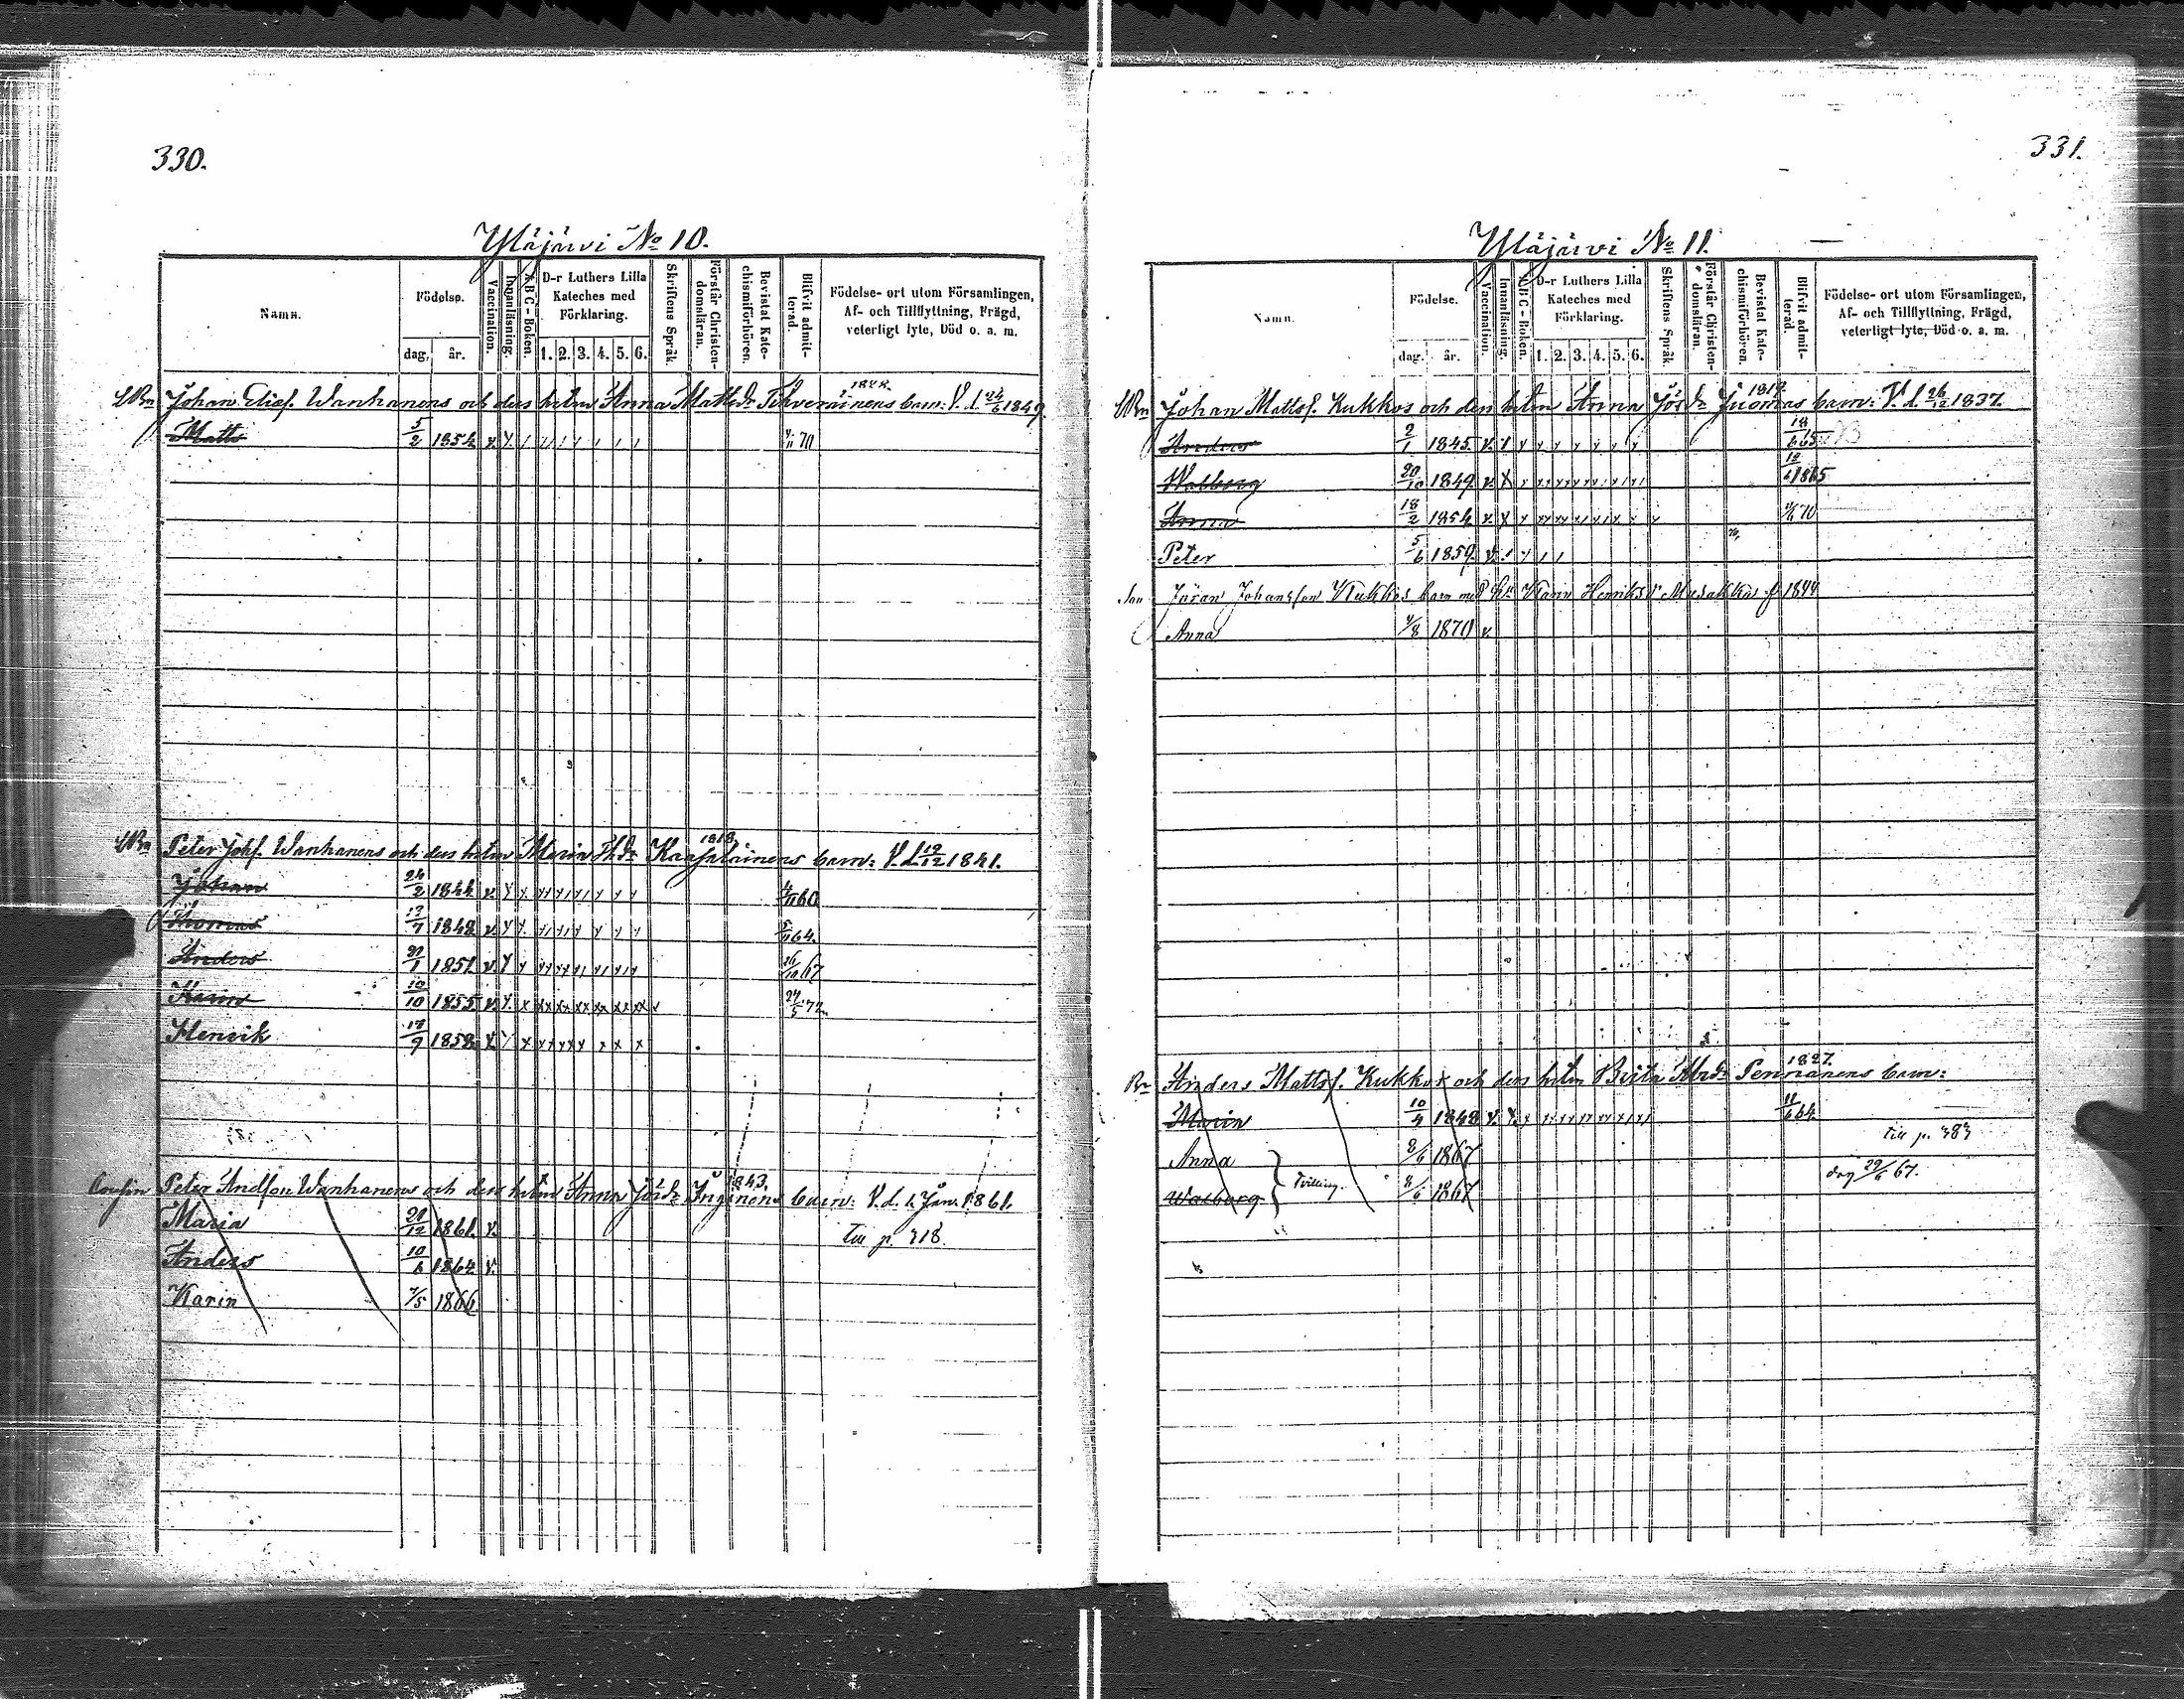 330.
Yläjärvi No 10.
Namn.
Födelse.
dag. år.
Vaccination.
Innanläsning.
ABC-Boken.
D-r Luthers Lilla Kateches med Förklaring.
1. 2. 3. 4. 5. 6.
Skriftens Språk.
Förstår Christendomsläran.
Bevistat Katechismiförhören.
Blifvit admitterad.
Födelse- ort utom Församlingen, Af- och Tillflyttning, Frägd, veterligt lyte, Död o. a. m.
Johan Eliaf. Wanhanens och dess hstru Anna Mattsdr Tihveräinens barn: V. d. 24/6 1849.
Matts 5/2 1854 70
1818
Peter Johf. Wanhanens och dess hstru Maria Thdr Kaajalainens barn: V. d. 19/12 1841.
Johan 24/2 1844 4/11 60
Thomas 13/7 1848 5/11 64.
Anders 21/1 1851 26/10 67
Karin 10/10 1855 24/5 72
Henrik 17/9 1858
1843.
Cousin Peter Andsson Wanhanens och dess hstru Anna Jördr Inginens barn: V. d. Jan. 1861.
Maria 20/12 1861 v. till p. 318.
Anders 10/6 1864 v.
Karin 7/5 1866
331.
Yläjärvi No 11.
Namn.
Födelse.
dag. år.
Vaccination.
Innanläsning.
ABC-Boken.
D-r Luthers Lilla Kateches med Förklaring.
1. 2. 3. 4. 5. 6.
Skriftens Språk
Förstår Christendomsläran.
Bevistat Katechismiförhören.
Blifvit admitterad.
Födelse- ort utom Församlingen, Af- och Tillflyttning, Frägd, veterligt lyte, Död o. a. m.
Johan Mattsf. Kukkos och dess hstru Anna Jördr Juomas barn: V. d. 26/12 1837.
Anders 2/1 1845 18/6 65
Walborg 20/10 1849 1865
Anna 18/2 1854 70
Peter 5/6 1859
Son Jöran Johansson Kukkos barn med h. Karin Henriksdr Musakka f 1844
Anna 4/8 1870 v.
1827.
Br Anders Mattsf. Kukkos och dess hstru Brita Abrdr Pennanens barn:
Maria 10/4 1848 11/6 64
till p. 383
Anna 8/6 1867
Walborg 8/6 1867
Tvilling.
dog 29/6 67.